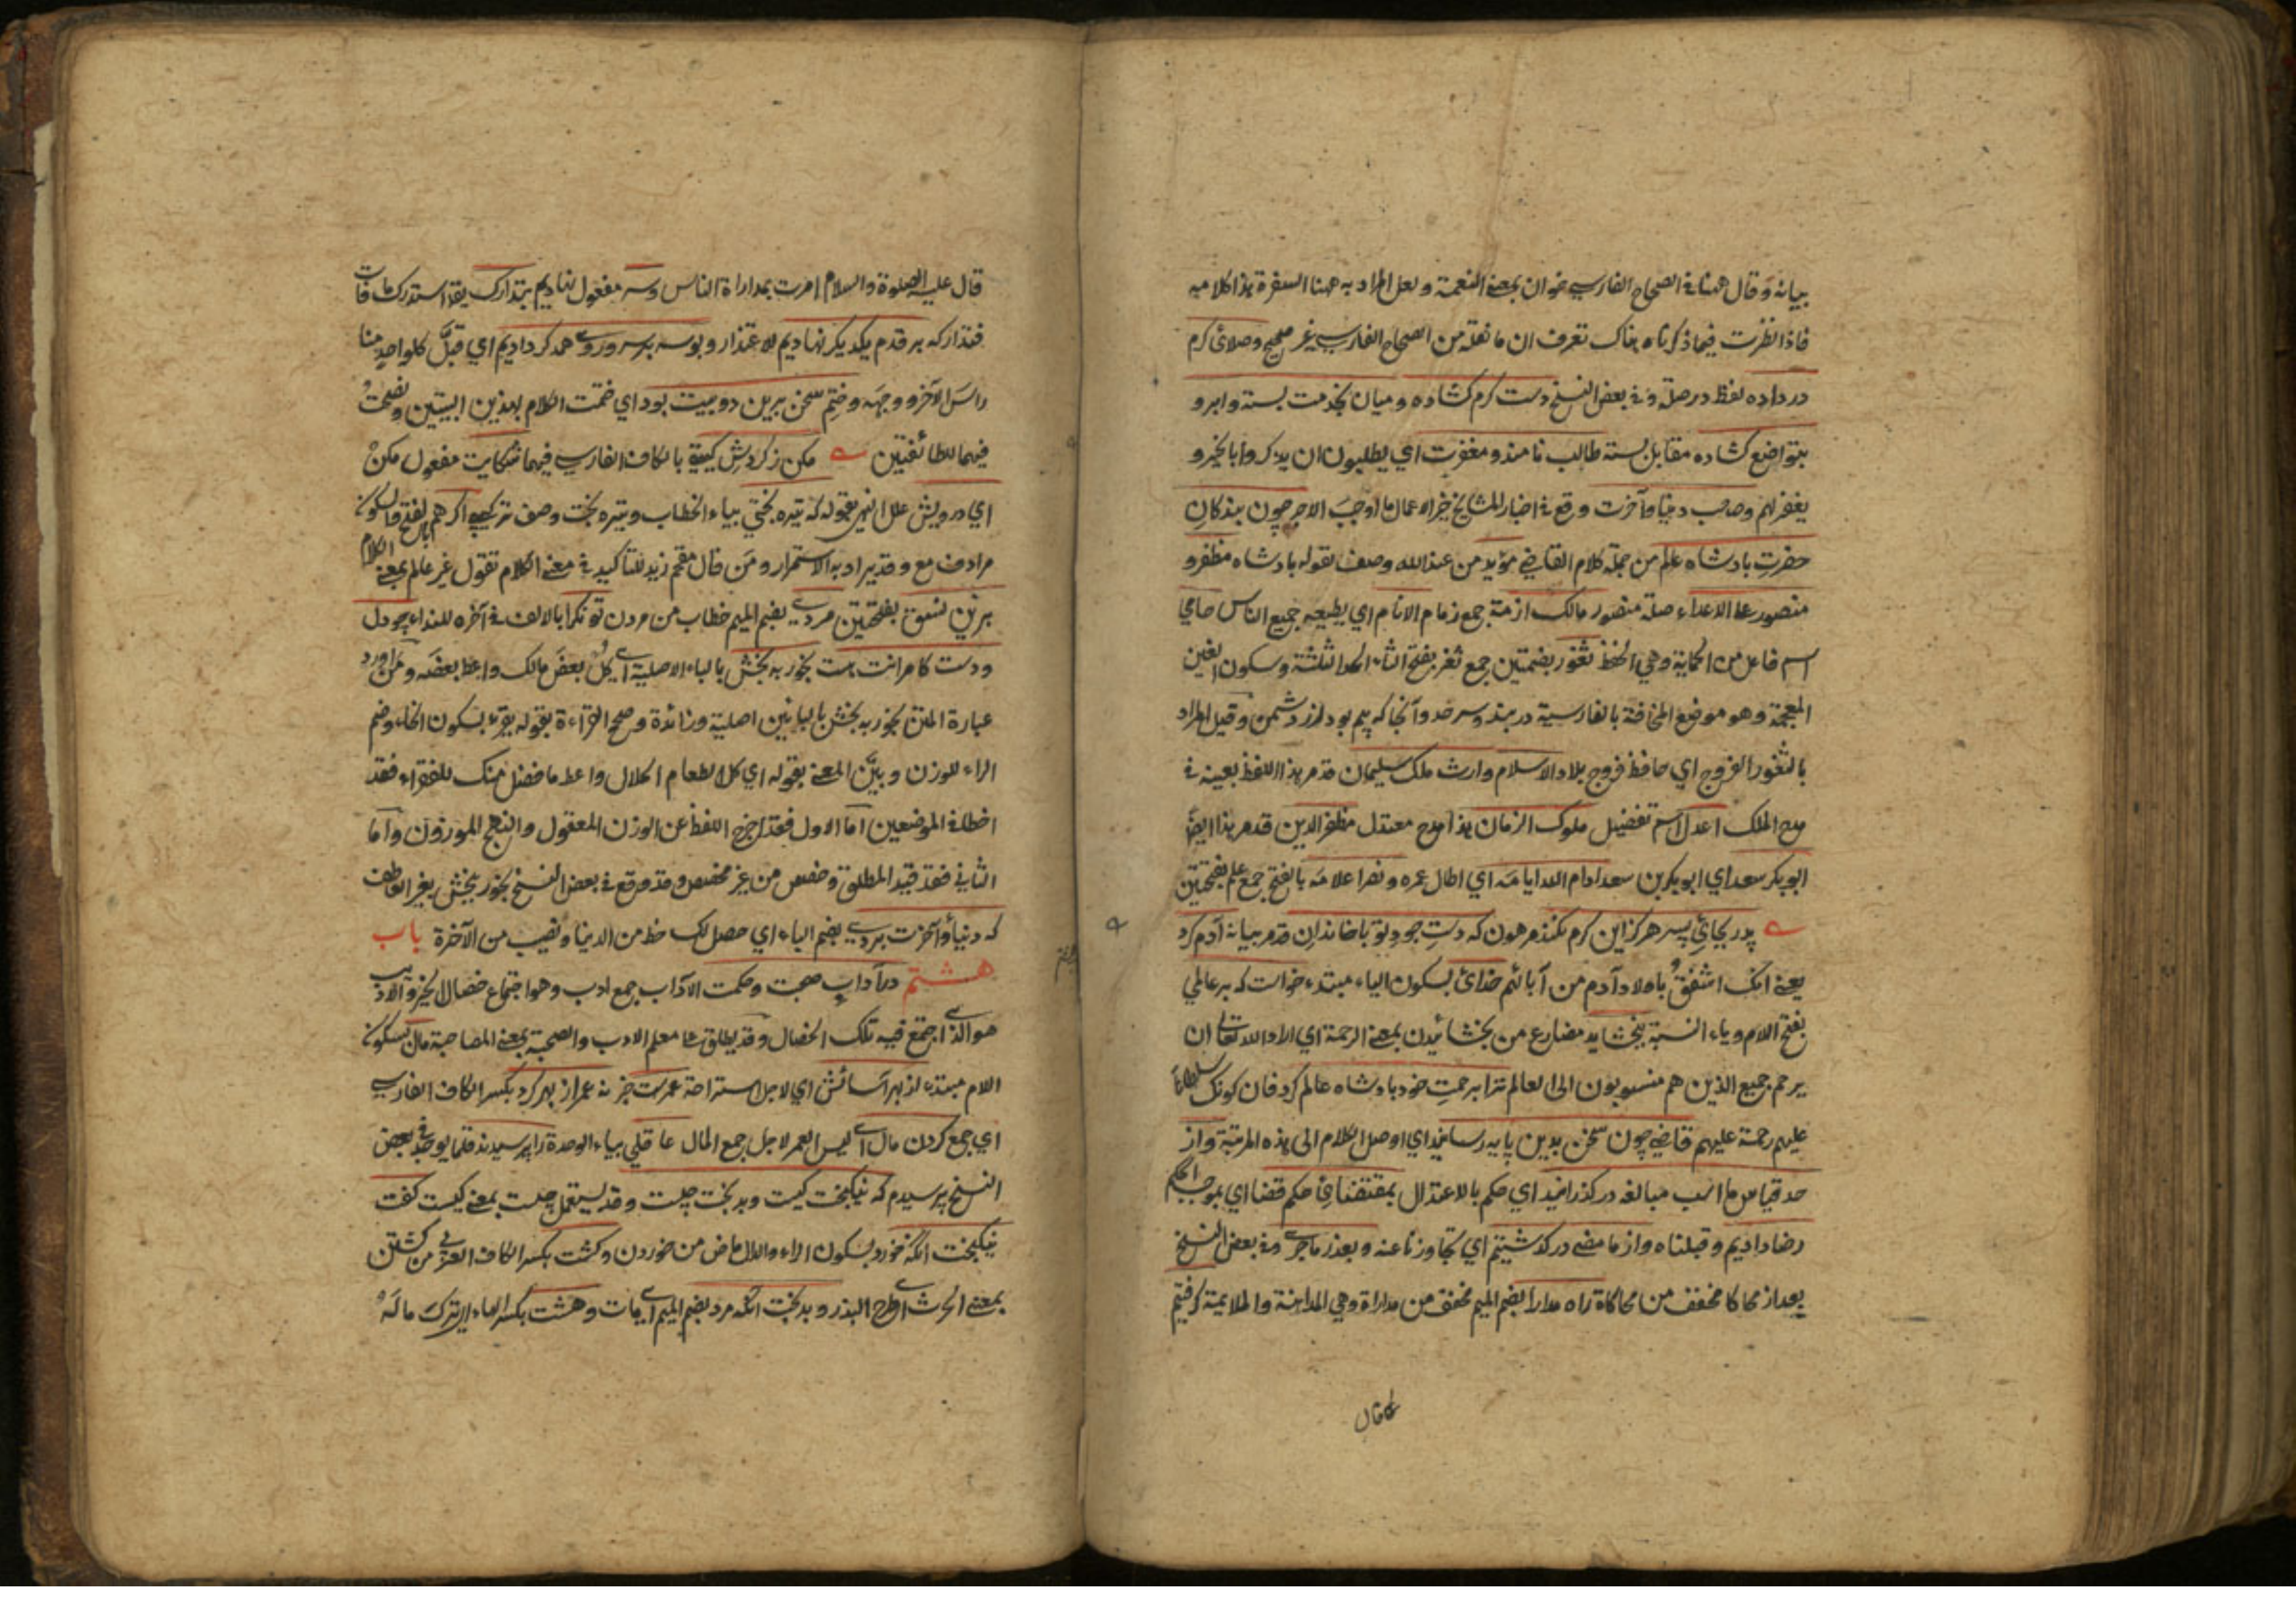 بيانه وقال ههنا في الصحاح الفارسي خوان بمعنى النعمة ولعل المراد به ههنا السفرة هذا كلامه
فاذا نظرت فيما ذكرناه هناك تعرف ان ما نقله من الصحاح الفارسي غير صحيح وصلائ كرم
در داده لفظ در صلة وفي بعض النسخ دست كرم كشاده وميان بخدمت بسته وابرو
بتواضع كشاده مقابل بسته طالب نامند ومغفرت اي يطلبون ان يذكروا بالخير و
يغفر لهم وصاحب دنيا وآخرت وقع في اخبار المشايخ خير الاعمال ما اوجب الاجر چون بندكان
حضرت بادشاه عالم من جملة كلام القاضي مؤيد من عند الله وصف لقوله بادشاه مظفر و
منصور على الاعداء صلة منصور مالك ازمة جمع زمام الانام اي يطيعه جميع الناس حامي
اسم فاعل من الحماية وهي الحفظ ثغور بضمتين جمع ثغر بفتح الثاء المثلثة وسكون الغين
المعجمة وهو موضع المخافة بالفارسية دربند وسرحد وآنجا كه بيم بود از دشمن وقيل المراد
بالثغور الفروج اي حافظ فروج بلاد الاسلام وارث ملك سليمان قد مر هذا اللفظ بعينه في
مدح الملك اعدل اسم تفضيل ملوك الزمان هذا مدح معتدل مظفر الدين قد مر هذا ايضا
ابو بكر سعد اي ابو بكر بن سعد ادام الله ايامه اي اطال عمره ونصر اعلامه بالفتح جمع علم بفتحتين
پدر بجائ پسر هركز اين كرم نكند مرهون كه دست جود تو با خاندان قد مر بيانه آدم كرد
يعني انك اشفق باولاد آدم من آبائهم خدائ بسكون الياء مبتدء خواست كه بر عالمي
بفتح اللام وياء النسبة ببخشايد مضارع من بخشائيدن بمعنى الرحمة اي اراد الله تعالى ان
يرحم جميع الذين هم منسوبون الى العالم ترا برحمت خود بادشاه عالم كرد فان كونك سلطانا
عليهم رحمة عليهم قاضي چون سخن بدين پايه رسانيد اي اوصل الكلام الى هذه المرتبة واز
حد قياس ما اسب مبالغه دركذرانيد اي حكم بالاعتدال بمقتضائ حكم قضا اي بموجب الحكم
رضا داديم وقبلناه واز ما مضى دركذشتيم اي تجاوزنا عنه وبعذر ماجرى وفي بعض النسخ
بعد از محاكا مخفف من محاكاة راه مدارا بضم الميم مخفف من مداراة وهي المداهنة والملايمة كرفتيم
كما قال
قال عليه الصلوة والسلام امرت بمداراة الناس وسر مفعول نهاديم بتدارك يقال استدرك ما فات
فتداركه بر قدم يكديكر نهاديم للاعتذار وبوسه بر سر وروى همدكر داديم اي قبل كل واحد منا
راس الآخر ووجهه وختم سخن برين دو بيت بود اي ختمت الكلام بهذين البيتين ونصحت
فيهما للطائفتين مكن ز كردش كيتي بالكاف الفارسي فيهما شكايت مفعول مكن
اي درويش علل النهي بقوله كه تيره بختي بياء الخطاب وتيره بخت وصف تركيبي اكر هم بالفتح والسكون
مرادف مع وقد يراد به الاستمرار ومن قال مقحم زيد للتاكيد في معنى الكلام تقول غير عالم بمعنى الكلام
برين نسق بفتحتين مردي بضم الميم خطاب من مردن توانكرا بالالف في آخره للنداء چو دل
ودست كامرانت هست بخور ببخش بالباء الاصلية اي كل بعض مالك واعط بعضه ومن اورد
عبارة المتن بخور به بخش بالبائين اصلية وزائدة وصحح القراءة بقوله يقرء بسكون الخاء وضم
الراء للوزن وبين المعنى بقوله اي كل الطعام الحلال واعط ما فضل منك للفقراء فقد
اخطا في الموضعين اما الاول فقد اخرج اللفظ عن الوزن المعقول والنهج الموزون واما
الثاني فقد قيد المطلق وخصص من غير مخصص وقد وقع في بعض النسخ بخور ببخش بغير العاطف
كه دنيا وآخرت بردي بضم الباء اي حصل لك حظ من الدنيا ونصيب من الآخرة باب
هشتم در آداب صحبت وحكمت الآداب جمع ادب وهو اجتماع خصال الخير والاديب
هو الذي اجتمع فيه تلك الخصال وقد يطلق على معلم الادب والصحبة بمعنى المصاحبة مال بسكون
اللام مبتدء از بهر آسائش اي لاجل استراحة عمرست خبره نه عمر از بهر كرد بكسر الكاف الفارسي
اي جمع كردن مال اي ليس العمر لاجل جمع المال عاقلي بياء الوحدة را پرسيدند قلما يوجد في بعض
النسخ پرسيدم كه نيكبخت كيست وبدبخت چيست وقد يستعمل چيست بمعنى كيست كفت
نيكبخت آنكه خورد بسكون الراء والدال ماض من خوردن وكشت بكسر الكاف العربي من كشتن
بمعنى الحرث اي طرح البذر وبدبخت آنكه مرد بضم الميم اي مات وهشت بكسر الهاء اي ترك ماله